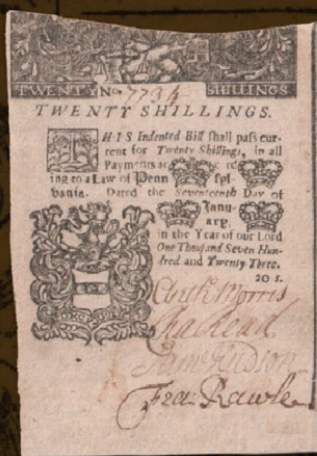 TWENTY No. 7734 SHILLINGS
TWENTY SHILLINGS.
THIS Indented Bill shall pass cur-
rent for Twenty Shillings, in all
Payments ac c rd
ing to a Law of Penn syl-
vania. Dated the Seventeenth Day of
Janu-
ary,
in the Year of our Lord
One Thousand Seven Hun-
dred and Twenty Three.
20 s.
Anth Morris
Cha Read
Sam Hudson
Fra: Rawle